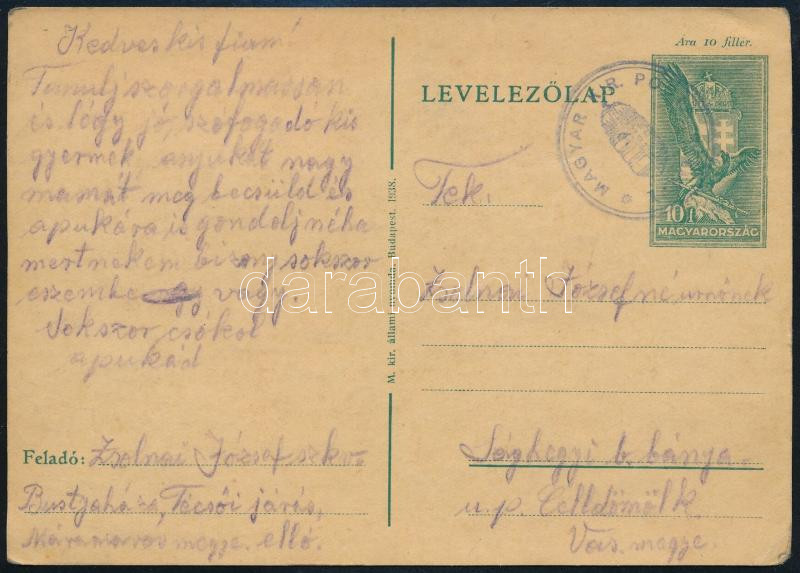 Kedves kis fiam!
Tanulj szorgalmasan
és légy jó, szófogadó kis
gyermek, anyukát nagy
mamát meg becsüld és
apukára is gondolj néha
mert nekem bizon sokszor
eszembe vagy.
Sokszor csókol
apukád
Feladó: Zsolnai József szkv.
Bustyaháza, Técsői járás,
Máramaros megye.
M. kir. állami nyomda, Budapest. 1938.
Ára 10 fillér.
LEVELEZŐLAP
MAGYAR KIR. PO
10 f
MAGYARORSZÁG
Tek.
Zsolnai Józsefné urnőnek
Sághegyi b. bánya.
u. p. Celldömölk
Vas. megye.
darabanth